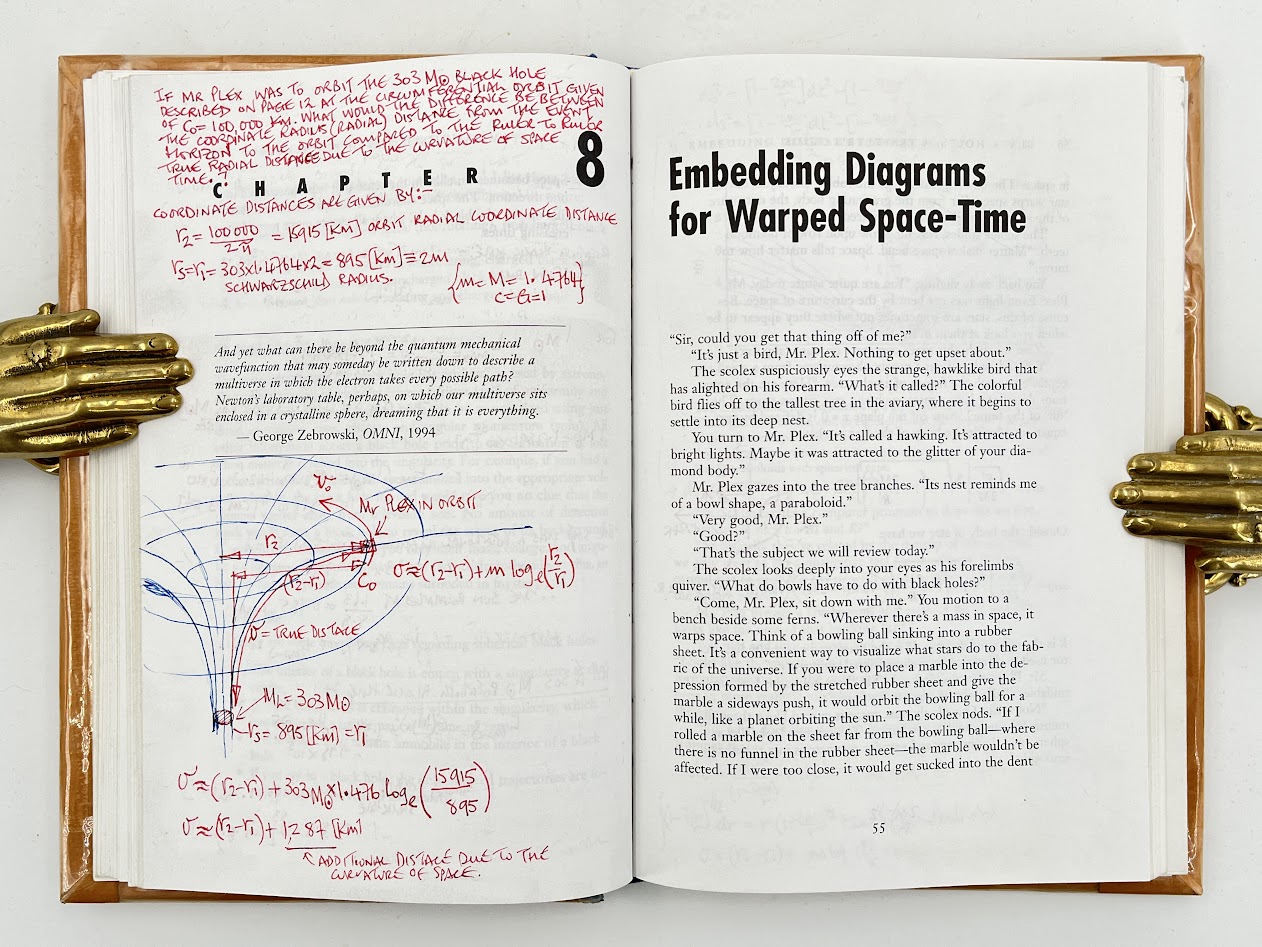 IF MR PLEX WAS TO ORBIT THE 303 M☉ BLACK HOLE
DESCRIBED ON PAGE 12 AT THE CIRCUMFERENTIAL ORBIT GIVEN
OF C₀= 100,000 KM. WHAT WOULD THE DIFFERENCE BE BETWEEN
THE COORDINATE RADIUS (RADIAL) DISTANCE FROM THE EVENT
HORIZON TO THE ORBIT COMPARED TO THE RULER TO RULER
TRUE RADIAL DISTANCE DUE TO THE CURVATURE OF SPACE
TIME.?
CHAPTER 8
COORDINATE DISTANCES ARE GIVEN BY:-
r₂ = 100 000 / 2π = 15915 [KM] ORBIT RADIAL COORDINATE DISTANCE
rs=r₁= 303×1.4764×2 = 895 [KM] ≡ 2M
SCHWARZSCHILD RADIUS.
{m = M = 1.4764}
c=G=1
And yet what can there be beyond the quantum mechanical
wavefunction that may someday be written down to describe a
multiverse in which the electron takes every possible path?
Newton's laboratory table, perhaps, on which our multiverse sits
enclosed in a crystalline sphere, dreaming that it is everything.
— George Zebrowski, OMNI, 1994
v₀
Mr PLEX IN ORBIT
r₂
(r₂-r₁)
C₀
σ≈(r₂-r₁)+m logₑ(r₂/r₁)
σ = TRUE DISTACE
ML = 303 M☉
rs = 895 [KM] = r₁
σ≈(r₂-r₁)+303M☉×1.476 logₑ(15915/895)
σ≈(r₂-r₁)+1,287 [KM]
↖ ADDITIONAL DISTACE DUE TO THE
CURVATURE OF SPACE.
Embedding Diagrams
for Warped Space-Time
“Sir, could you get that thing off of me?”
“It's just a bird, Mr. Plex. Nothing to get upset about.”
The scolex suspiciously eyes the strange, hawklike bird that
has alighted on his forearm. “What's it called?” The colorful
bird flies off to the tallest tree in the aviary, where it begins to
settle into its deep nest.
You turn to Mr. Plex. “It's called a hawking. It's attracted to
bright lights. Maybe it was attracted to the glitter of your dia-
mond body.”
Mr. Plex gazes into the tree branches. “Its nest reminds me
of a bowl shape, a paraboloid.”
“Very good, Mr. Plex.”
“Good?”
“That's the subject we will review today.”
The scolex looks deeply into your eyes as his forelimbs
quiver. “What do bowls have to do with black holes?”
“Come, Mr. Plex, sit down with me.” You motion to a
bench beside some ferns. “Wherever there's a mass in space, it
warps space. Think of a bowling ball sinking into a rubber
sheet. It's a convenient way to visualize what stars do to the fab-
ric of the universe. If you were to place a marble into the de-
pression formed by the stretched rubber sheet and give the
marble a sideways push, it would orbit the bowling ball for a
while, like a planet orbiting the sun.” The scolex nods. “If I
rolled a marble on the sheet far from the bowling ball—where
there is no funnel in the rubber sheet—the marble wouldn't be
affected. If I were too close, it would get sucked into the dent
55